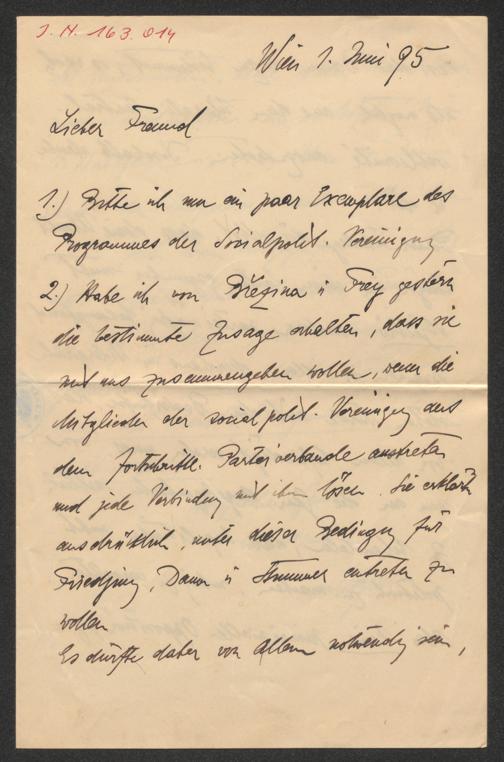 J. N. 163.014
Wien 1. Juni 95
Lieber Freund
1.) Bitte ich um ein paar Exemplare des
Programmes der Socialpolit. Vereinigung
2.) Habe ich von Březina u Frey gestern
die bestimmte Zusage erhalten, dass sie
mit uns zusammengehen wollen, wenn die
Mitglieder der socialpolit. Vereinigung aus
dem fortschrittl. Parteiverbande austreten
und jede Verbindung mit ihm lösen. Sie erklärten
ausdrücklich, unter dieser Bedingung für
Friedjung, Dama u entreten zu
wollen
Es dürfte daher vor Allem notwendig sein,